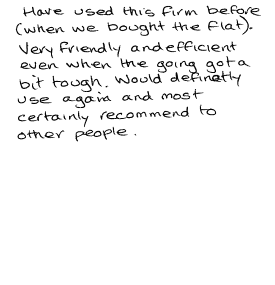 Have used this firm before
(when we bought the flat).
Very friendly and efficient
even when the going got a
bit tough. Would definetly
use again and most
certainly recommend to
other people.